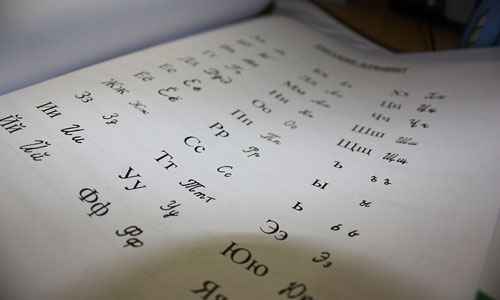 Её Её
Жж Жж
Зз Зз
Ии Ии
Йй Йй
Мм Мм
Нн Нн
Оо Оо
Пп Пп
Рр Рр
Сс Сс
Тт Тт
Уу Уу
Фф Фф
Хх Хх
Цц Цц
Чч Чч
Шш Шш
Щщ Щщ
ъ ъ ъ
ы ы
ь ь ь
Ээ Ээ
Юю Юю
Яя